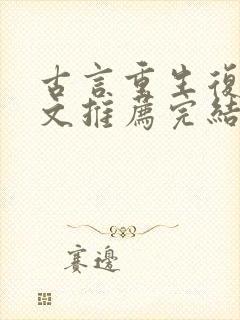 古言重生復
文推薦完結
賽邊